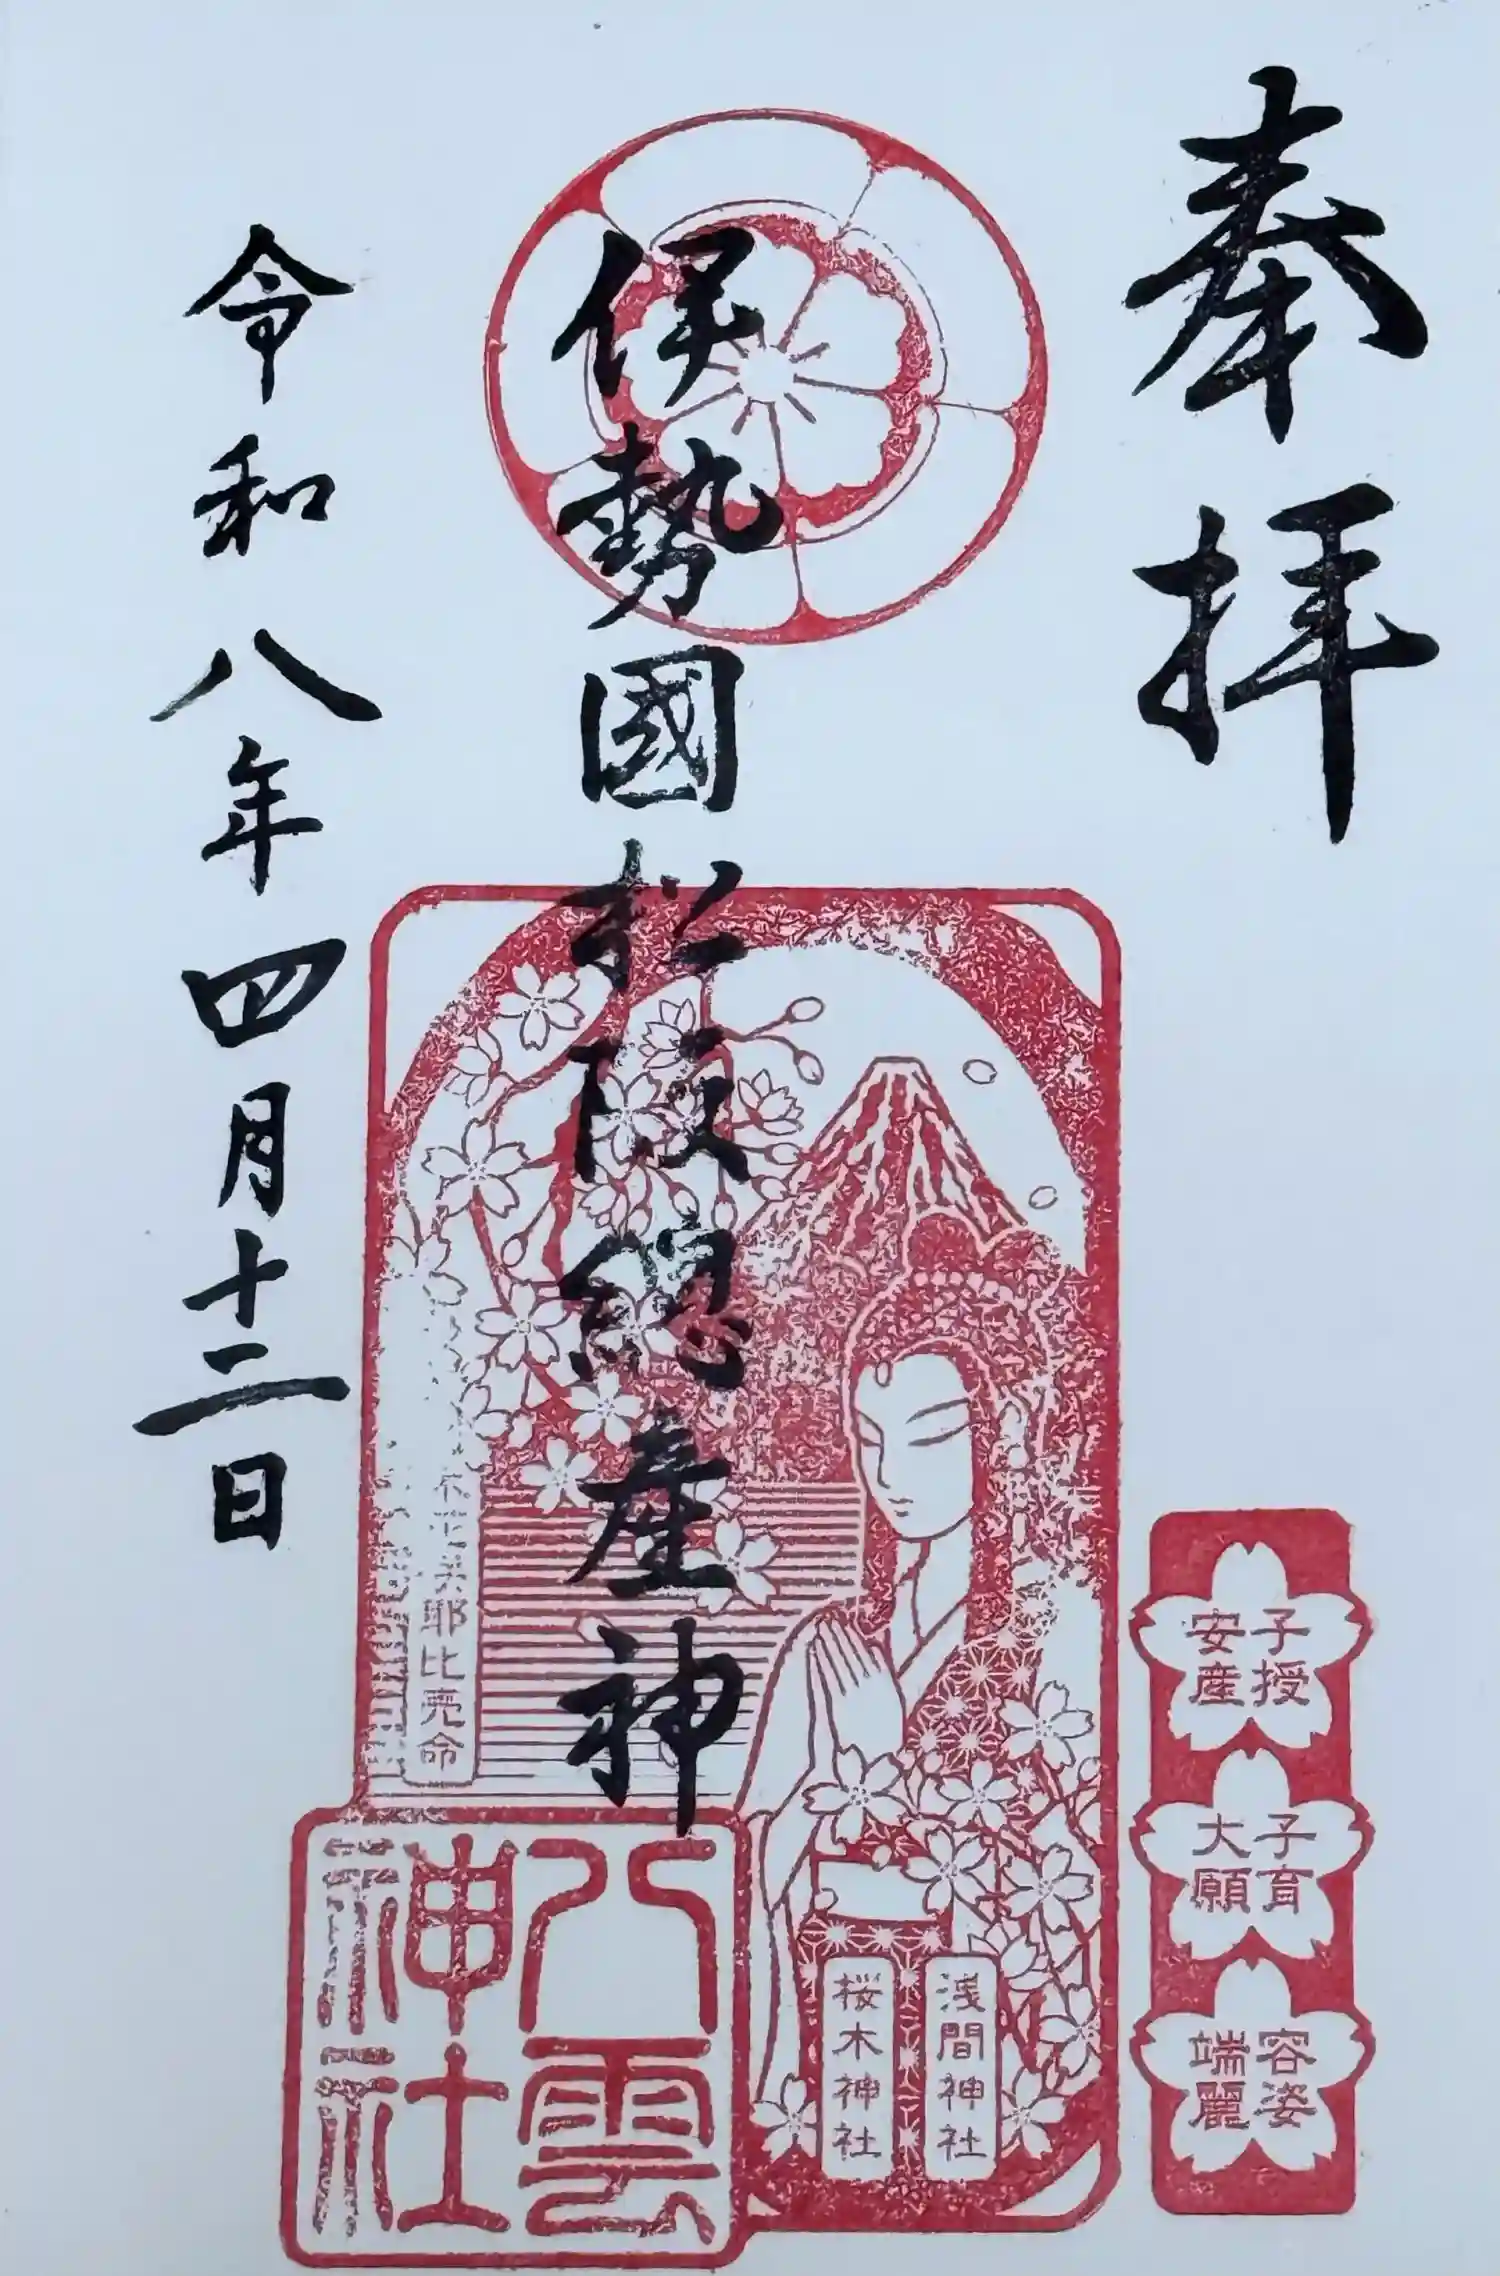 奉拝
伊勢國松阪總産神
令和八年四月十二日
耶比売命
八雲
神社
浅間神社
桜木神社
子授
安産
子育
大願
容姿
端麗